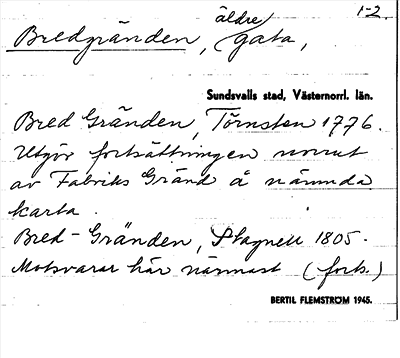 1-2.
Bredgränden, äldre gata,
Sundsvalls stad, Västernorrl. län.
Bred Gränden, Törnsten 1776.
Utgör fortsättningen norrut
av Fabriks Gränd å nämnda
karta.
Bred-Gränden, Stagnell 1805.
Motsvarar här närmast (forts.)
BERTIL FLEMSTRÖM 1945.